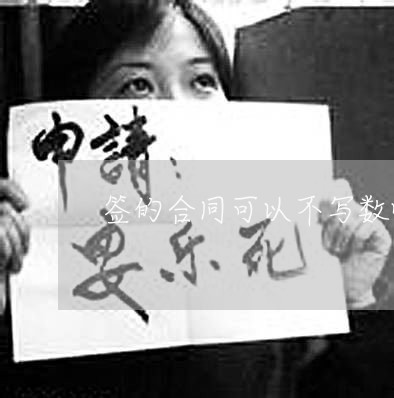 申請：
签的合同可以不写数
安乐死